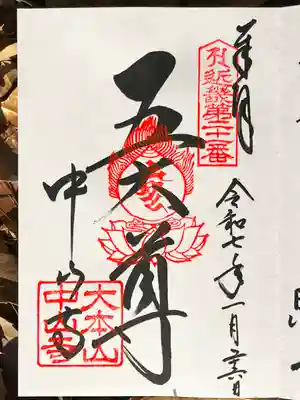 奉拝
近畿第二十一番
五大尊
令和七年一月二六日
中山寺
大本山
中山寺